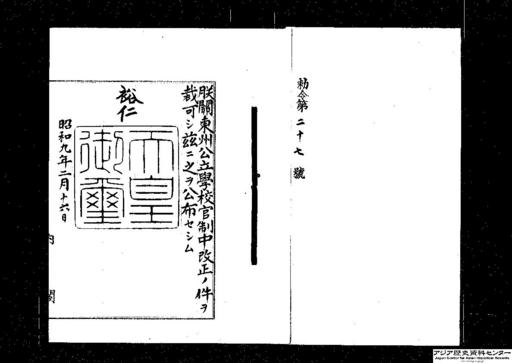 勅令第二十七號
朕關東州公立學校官制中改正ノ件ヲ
裁可シ茲ニ之ヲ公布セシム
裕仁
天皇御璽
昭和九年二月十六日
内閣
アジア歴史資料センター
Japan Center for Asian Historical Records